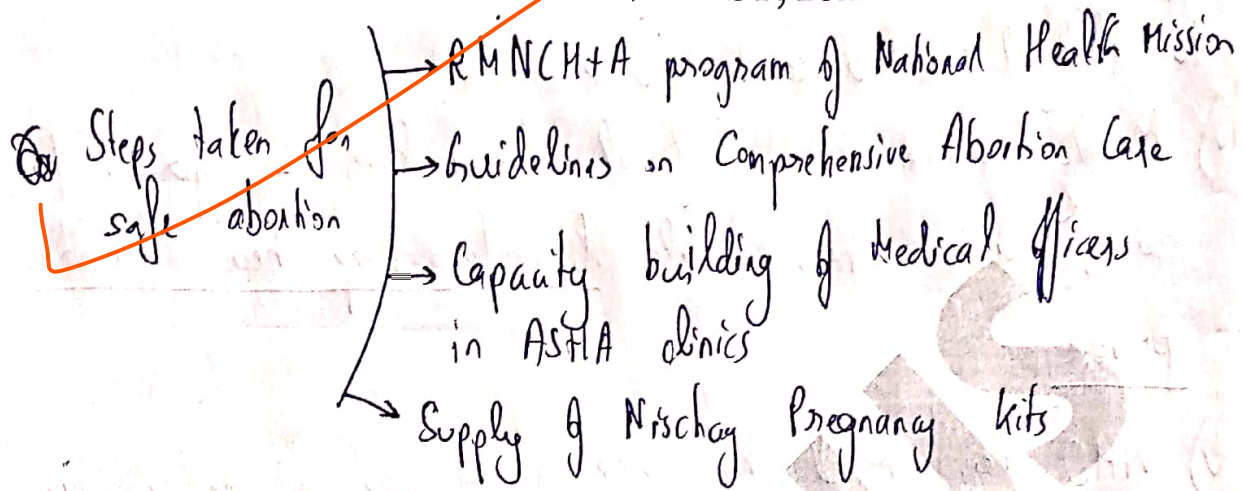 Steps taken for
safe abortion
→ RMNCH+A program of National Health Mission
→ Guidelines on Comprehensive Abortion Care
→ Capacity building of Medical Officers
in ASHA clinics
→ Supply of Nischay Pregnancy kits